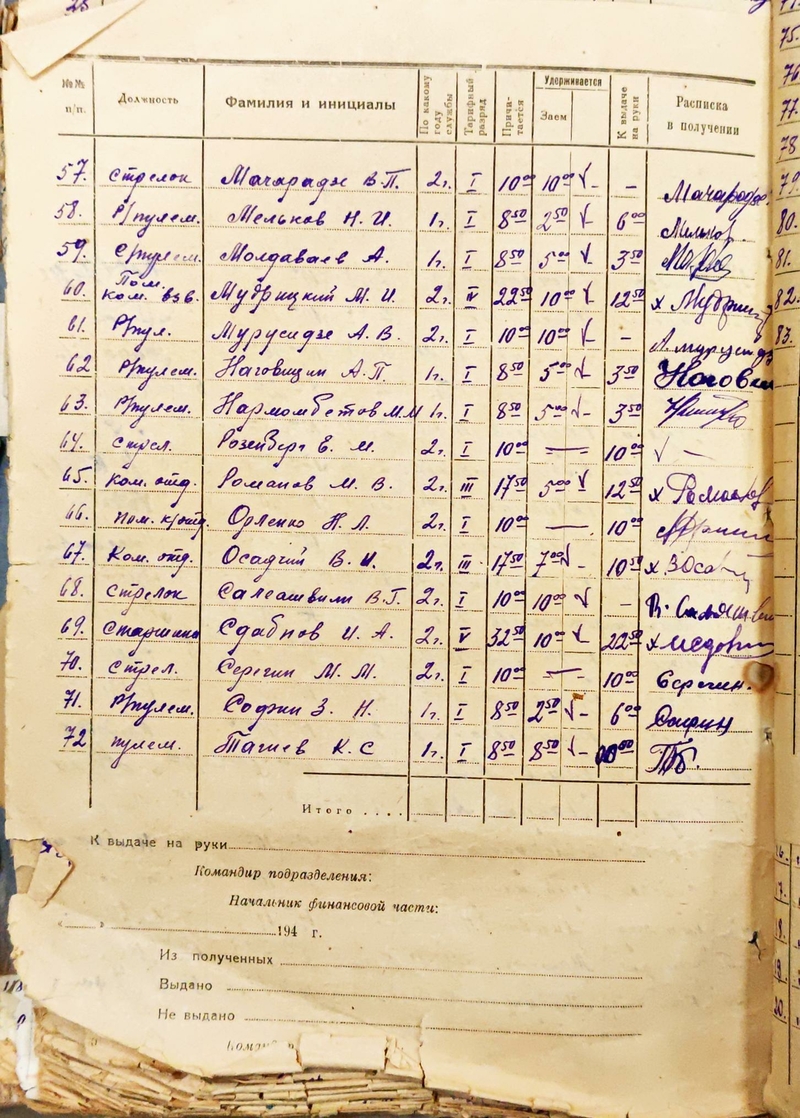 28
№№ п/п. Должность Фамилия и инициалы По какому году службы Тарифный разряд Причитается Удерживается Заем К выдаче на руки Расписка в получении
57. стрелок Мачарадзе В.П. 2г. I 10 00 10 00 √ - – Мачарадзе
58. Р/пулем. Мельков Н.И. 1г. I 8 50 2 50 √ - 6 00 Мельков
59. С/пулем. Молдаваев А. 1г. I 8 50 5 00 √ 3 50
60. Пом. ком. взв. Мудрицкий М.И. 2г. IV 22 50 10 00 √ 12 50 х Мудриц
61. Р/пул. Мурусидзе А.В. 2г. I 10 00 10 00 √ - – А.мурусидз
62 Р/пулем. Наговицин А.П. 1г. I 8 50 5 00 √ 3 50 Нагови
63. Р/пулем. Нармомбетов М.М 1г. I 8 50 5 00 √ - 3 50
64. стрел. Розенберг Е.М. 2г. I 10 00 — 10 00 √ –
65. Ком. отд. Романов М.В. 2г. III 17 50 5 00 √ 12 50 х Романов
66. пом. к/отд. Орленко Н.Л. 2г. I 10 00 — 10 00
67. Ком. отд. Осадчий В.И. 2г. III 17 50 7 00 √ - 10 50 х
68. Стрелок Салеашвили В.Г. 2г. I 10 00 10 00 √ –
69. Старшина Сдабнов И.А. 2г. V 32 50 10 00 √ 22 50 х
70. Стрел. Серегин М.М. 2г. I 10 00 — 10 00 Серегин.
71. Р/пулем. Софин З.Н. 1г. I 8 50 2 50 √ - 6 00 Софин
72 пулем. Тагиев К.С 1г. I 8 50 8 50 √ - 00 00
Итого ....
К выдаче на руки
Командир подразделения:
Начальник финансовой части:
« » 194 г.
Из полученных
Выдано
Не выдано
75.
76
77.
78
79
80.
81.
82.
83.